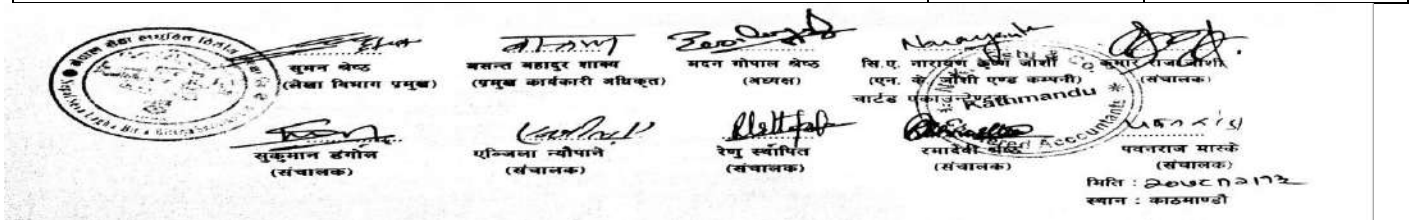 सुमन श्रेष्ठ
(लेखा विभाग प्रमुख)
बसन्त बहादुर शाक्य
(प्रमुख कार्यकारी अधिकृत)
मदन गोपाल श्रेष्ठ
(अध्यक्ष)
सि.ए. नारायण कृष्ण जोशी
(एन. के. जोशी एण्ड कम्पनी)
चार्टड एकाउन्टेण्ट्स
Kathmandu
कुमार राज जोशी
(संचालक)
सुकुमान डंगोल
(संचालक)
एञ्जिला न्यौपाने
(संचालक)
रेणु स्थापित
(संचालक)
रमादेवी श्रेष्ठ
(संचालक)
पवनराज मास्के
(संचालक)
मिति :
स्थान : काठमाण्डौ